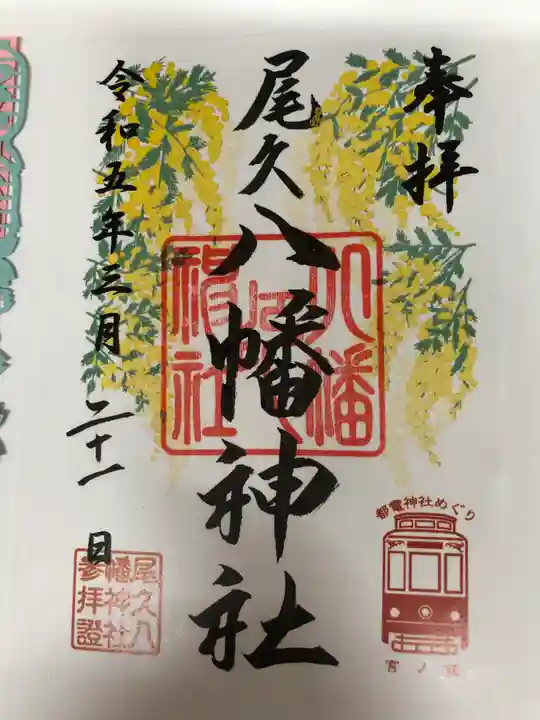 奉拝
尾久八幡神社
八幡神社
令和五年三月二十一日
都電神社めぐり
宮ノ前
尾久八
幡神社
参拝證